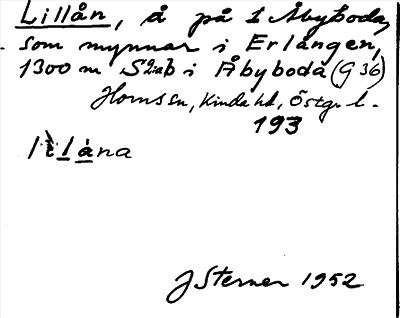 Lillån, å på 1 Åbyboda,
som mynnar i Erlången,
1300 m S i Åbyboda (G 36)
Horns sn, Kinda hd, Östg. l.
193
J Sterner 1952